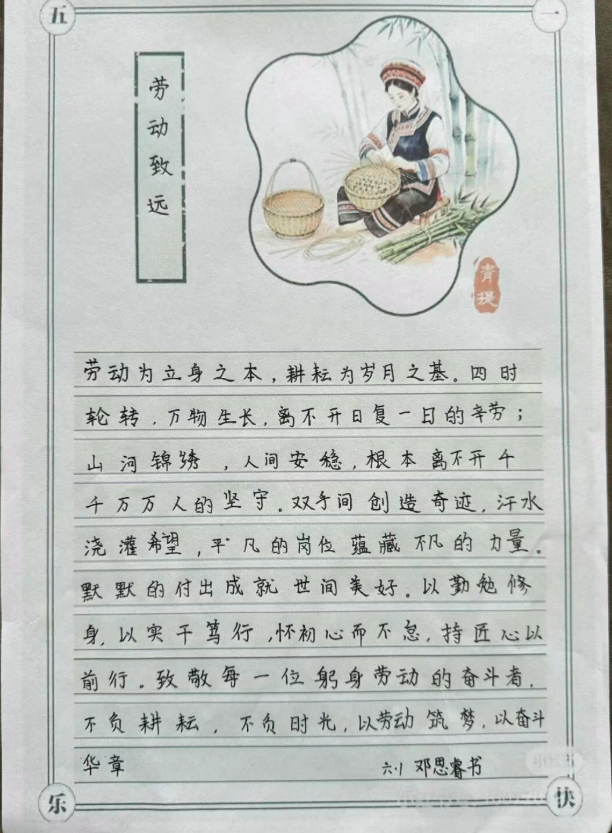 五
一
劳动致远
青提
劳动为立身之本，耕耘为岁月之基。四时
轮转，万物生长，离不开日复一日的辛劳；
山河锦绣，人间安稳，根本离不开千
千万万人的坚守。双手间创造奇迹，汗水
浇灌希望，平凡的岗位蕴藏不凡的力量。
默默的付出成就世间美好。以勤勉修
身，以实干笃行，怀初心而不怠，持匠心以
前行。致敬每一位躬身劳动的奋斗者，
不负耕耘，不负时光，以劳动筑梦，以奋斗
华章
六1 邓思睿书
乐
快